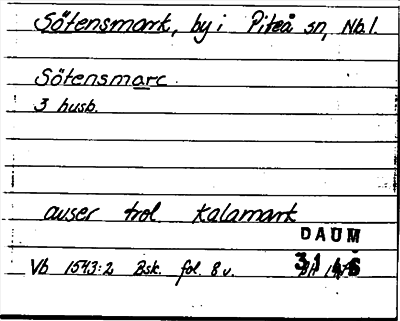 Sötensmark, by i Piteå sn, Nb.l.
Sötensmarc.
3 husb.
avser trol. Kalamark
DAUM
Vb 1543:2 Bsk. fol. 8 v.